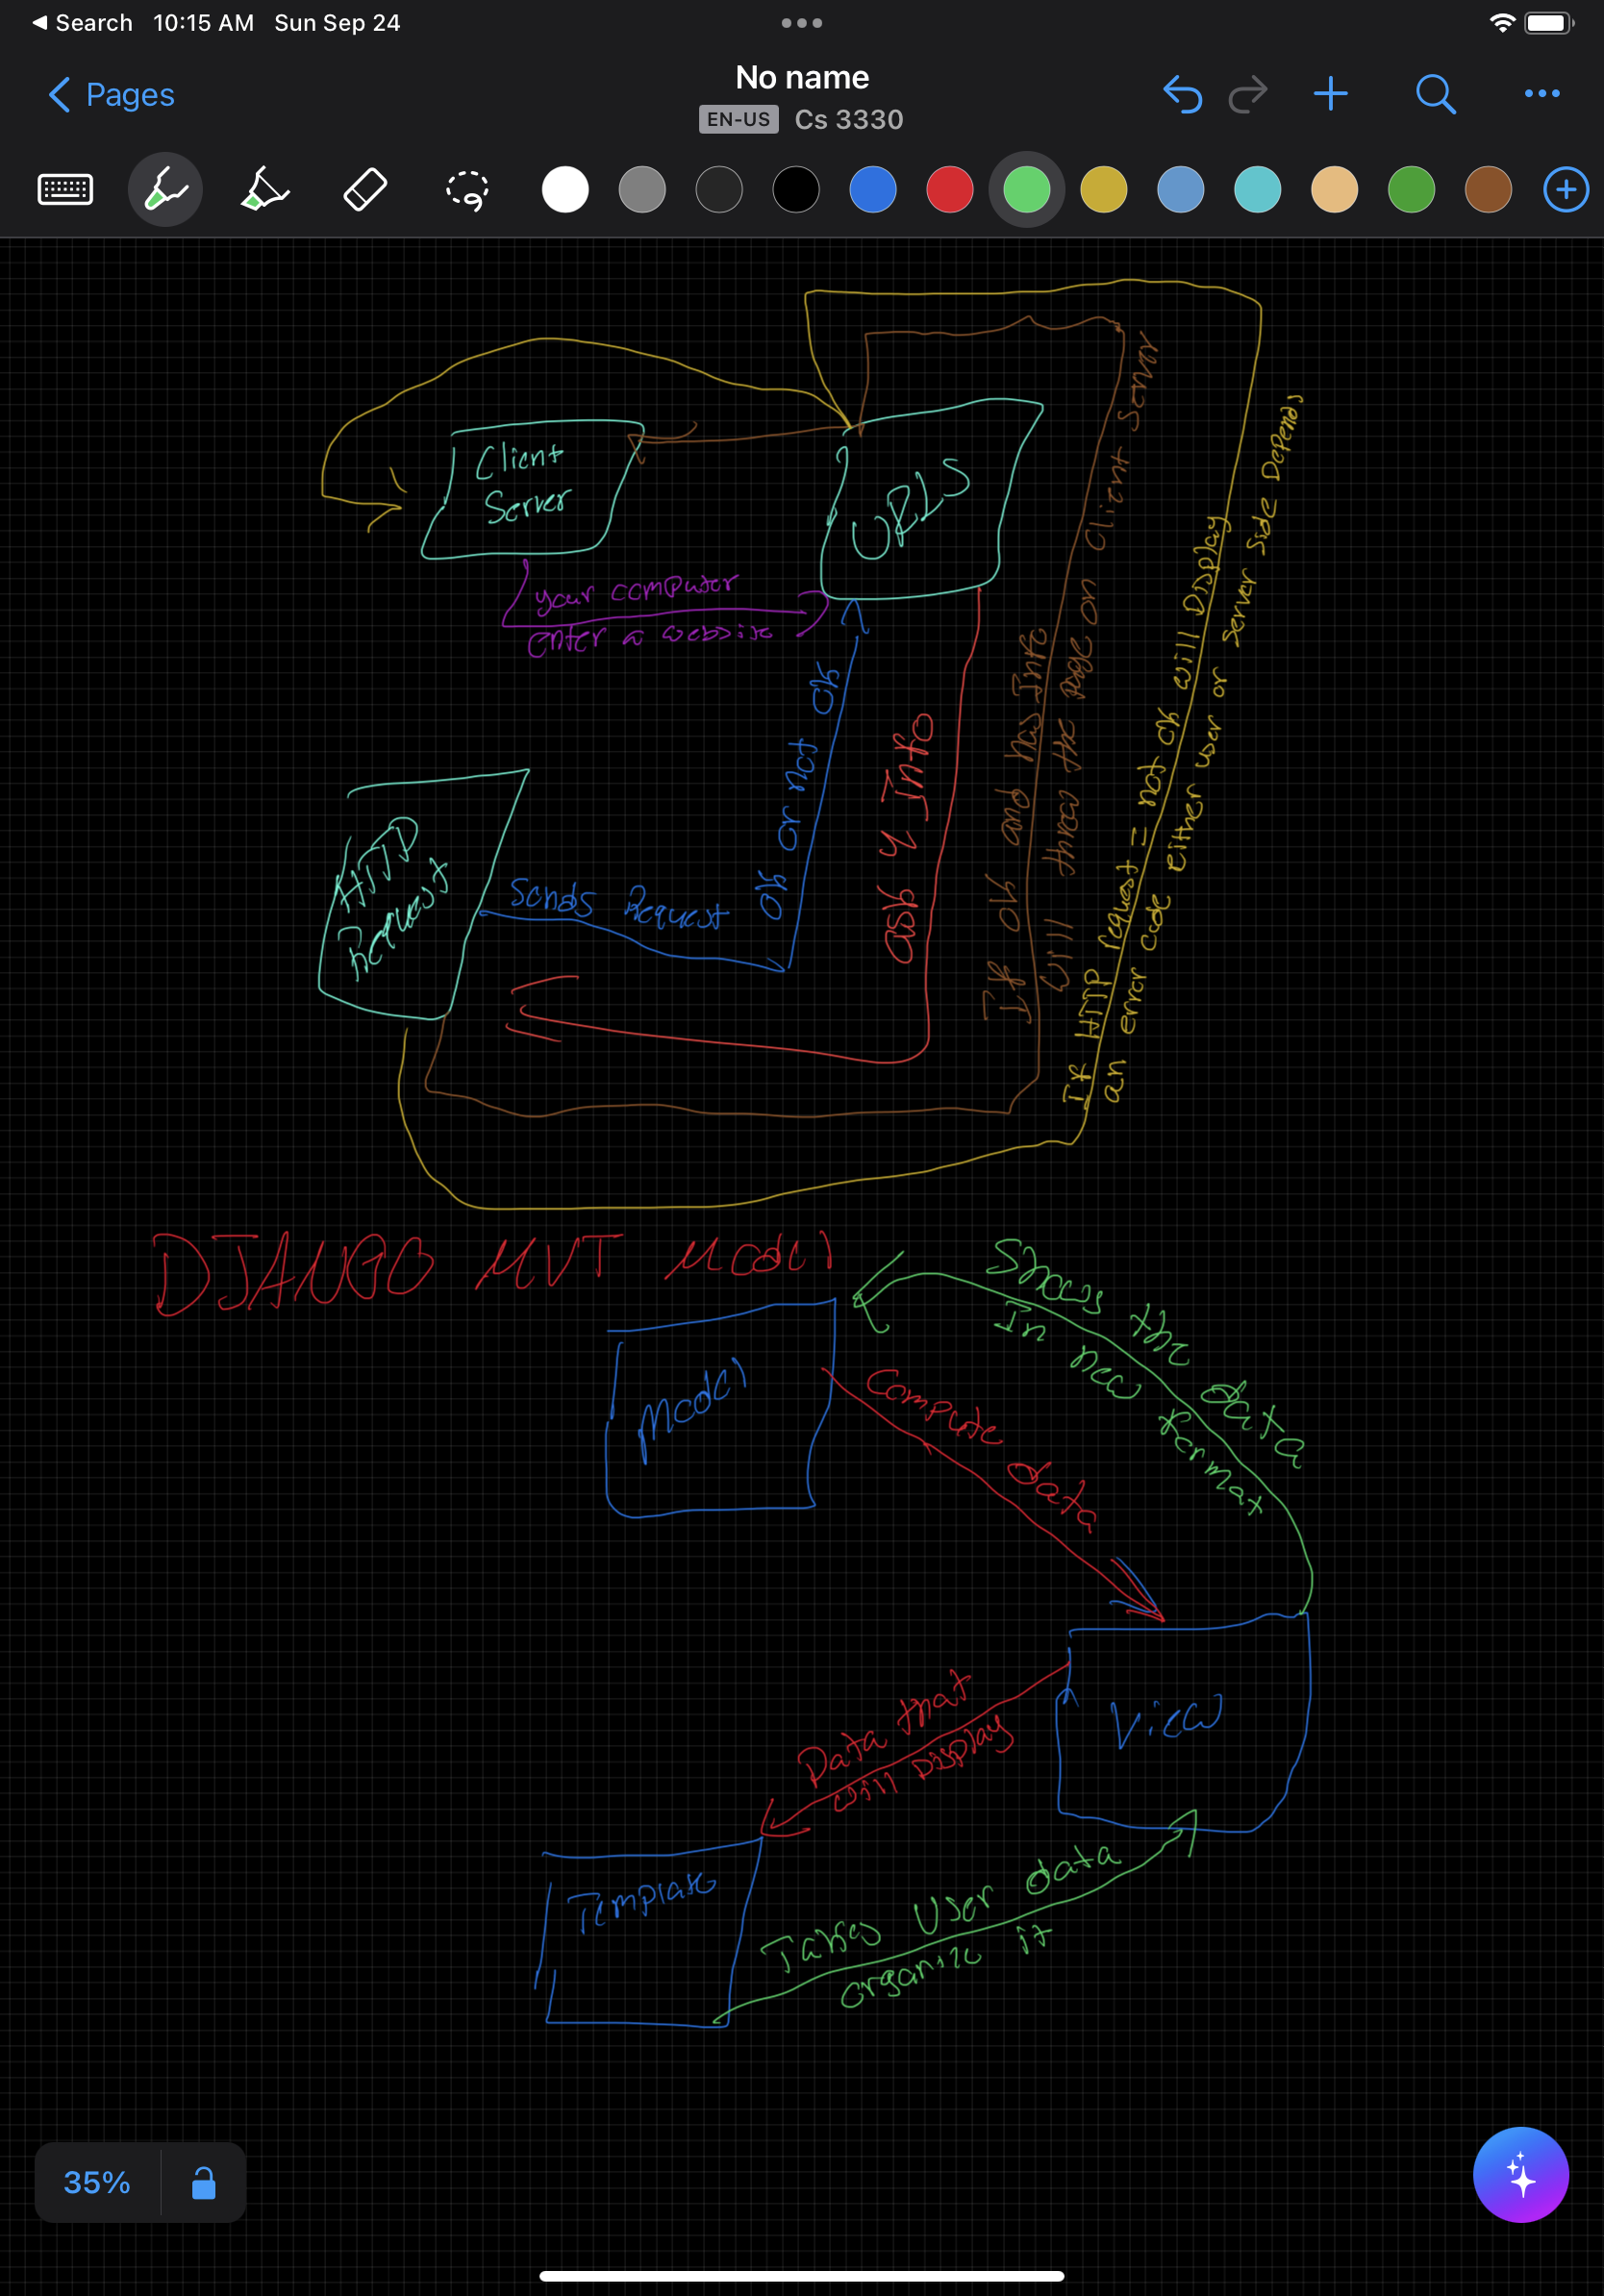 Search 10:15 AM Sun Sep 24
Pages
No name
EN-US Cs 3330
Client
Server
URLS
your computer
enter a website
HTTP
Request
Sends Request
Ok or not ok
ask 4 Info
If ok and has Info
will throw the page on Client Server
If HTTP request = not ok will Display
an error code either user or server side Depends
DJANGO MVT Model
Model
Compute data
Shows the data
In new format
View
Data that
will Display
Template
Takes User data
organize it
35%